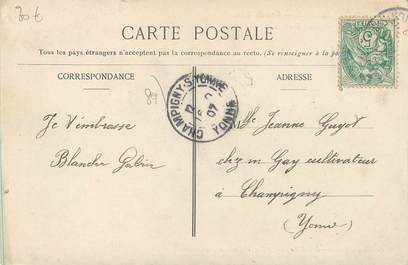 30€
CARTE POSTALE
Tous les pays étrangers n'acceptent pas la correspondance au recto. (Se renseigner à la
CORRESPONDANCE
ADRESSE
89
CHAMPIGNY-S-YONNE
5
Je t'embrasse
Blanche Gabin
Mlle Jeanne Guyot
chez m Gay cultivateur
à Champigny
(Yonne)